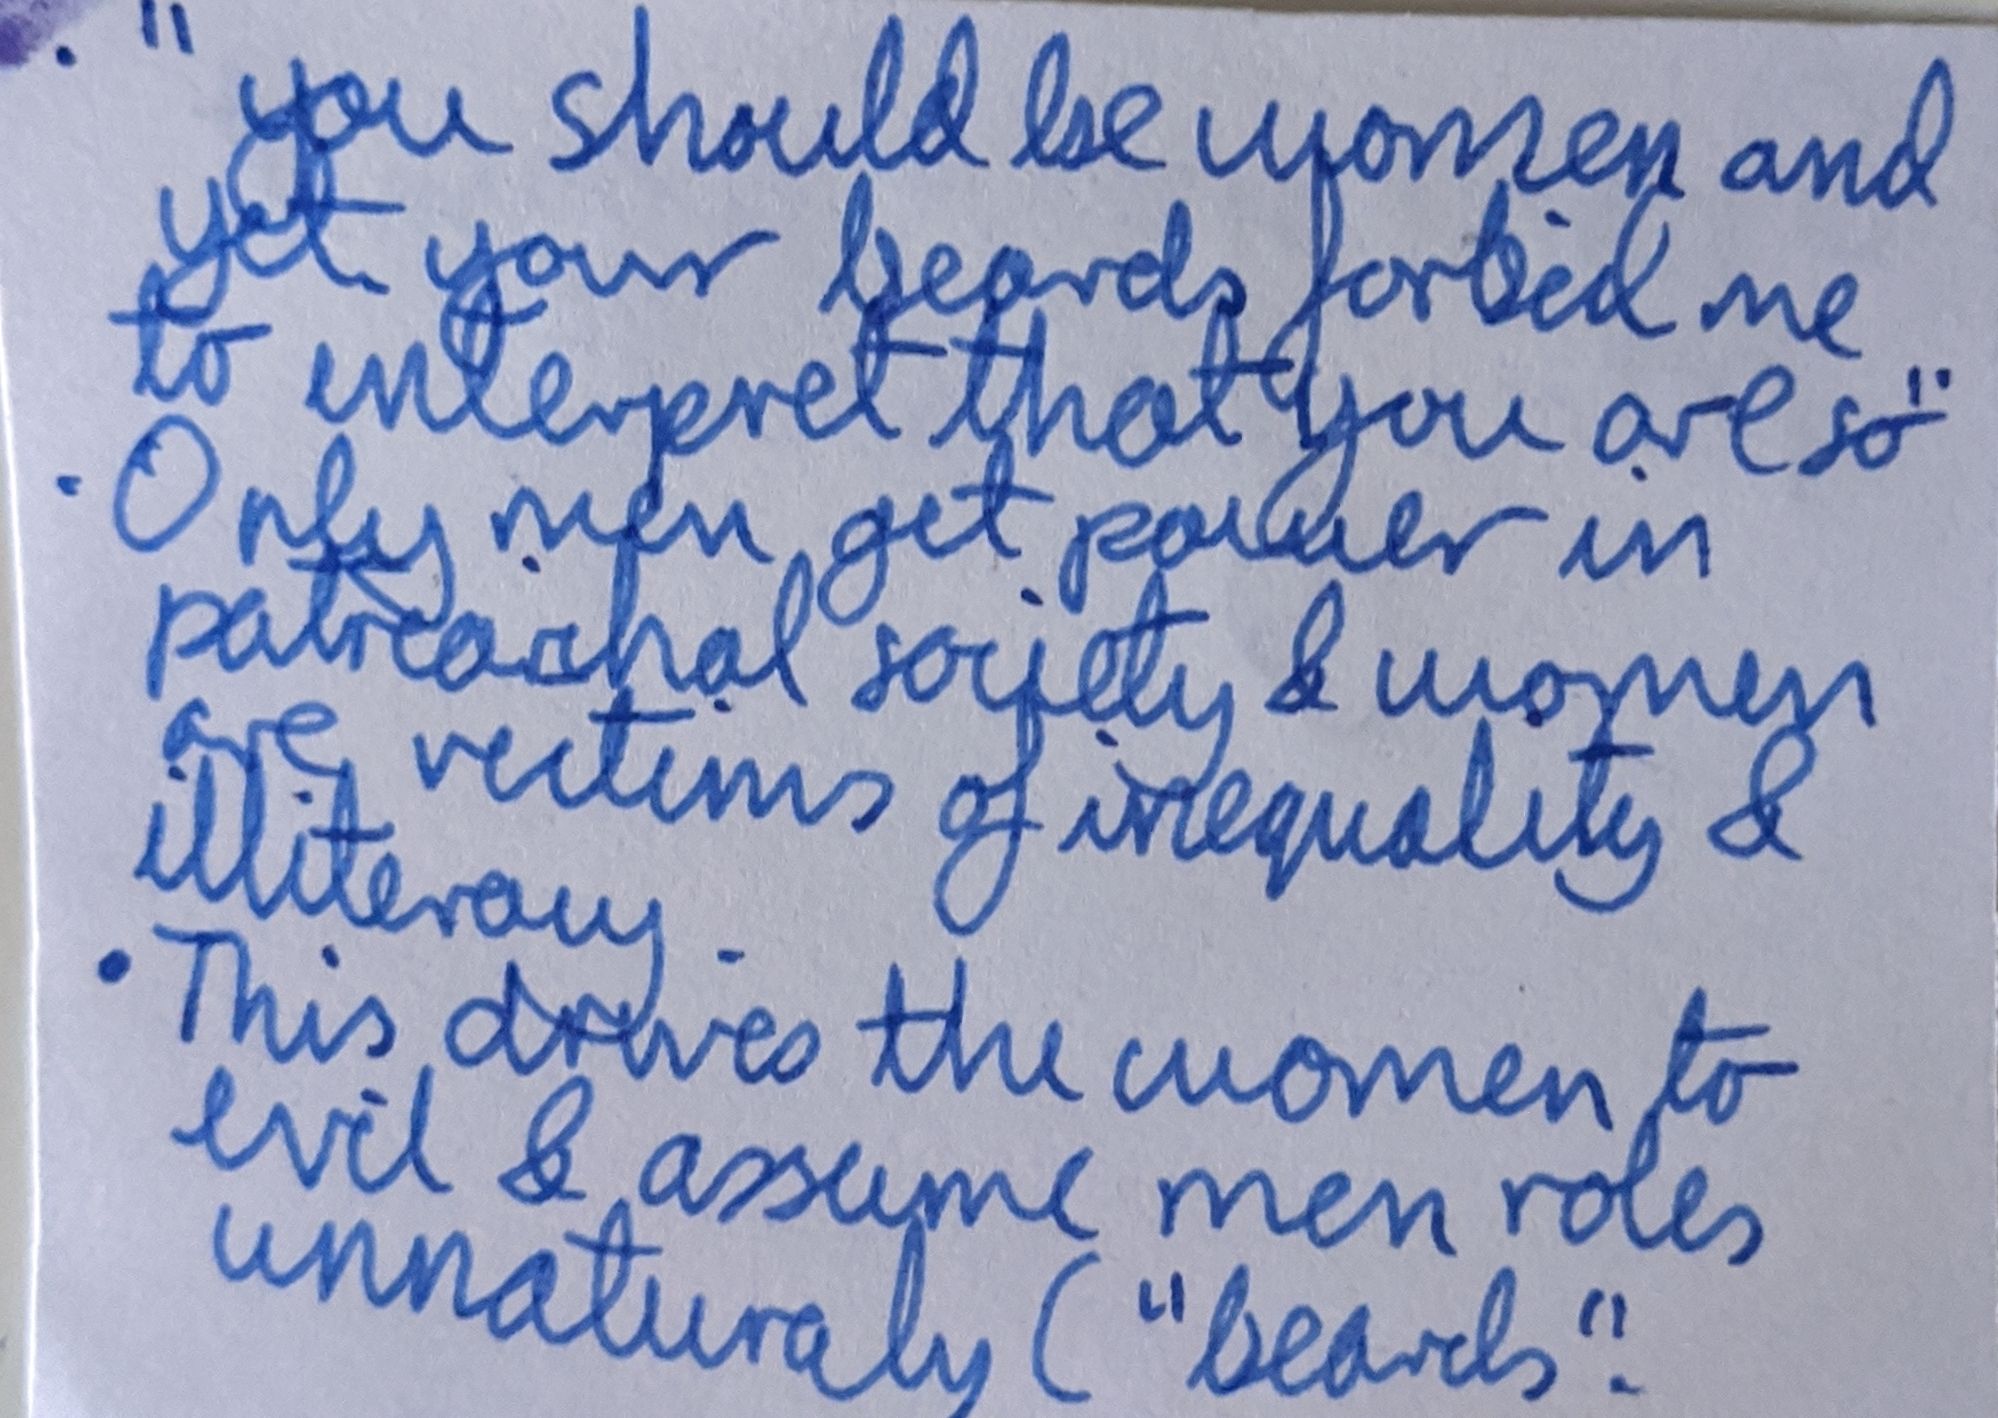 · "you should be women and
yet your beards forbid me
to interpret that you are so"
· Only men get power in
patriarchal society & women
are victims of inequality &
illiteracy.
• This drives the women to
evil & assume men roles
unnaturaly ("beards".